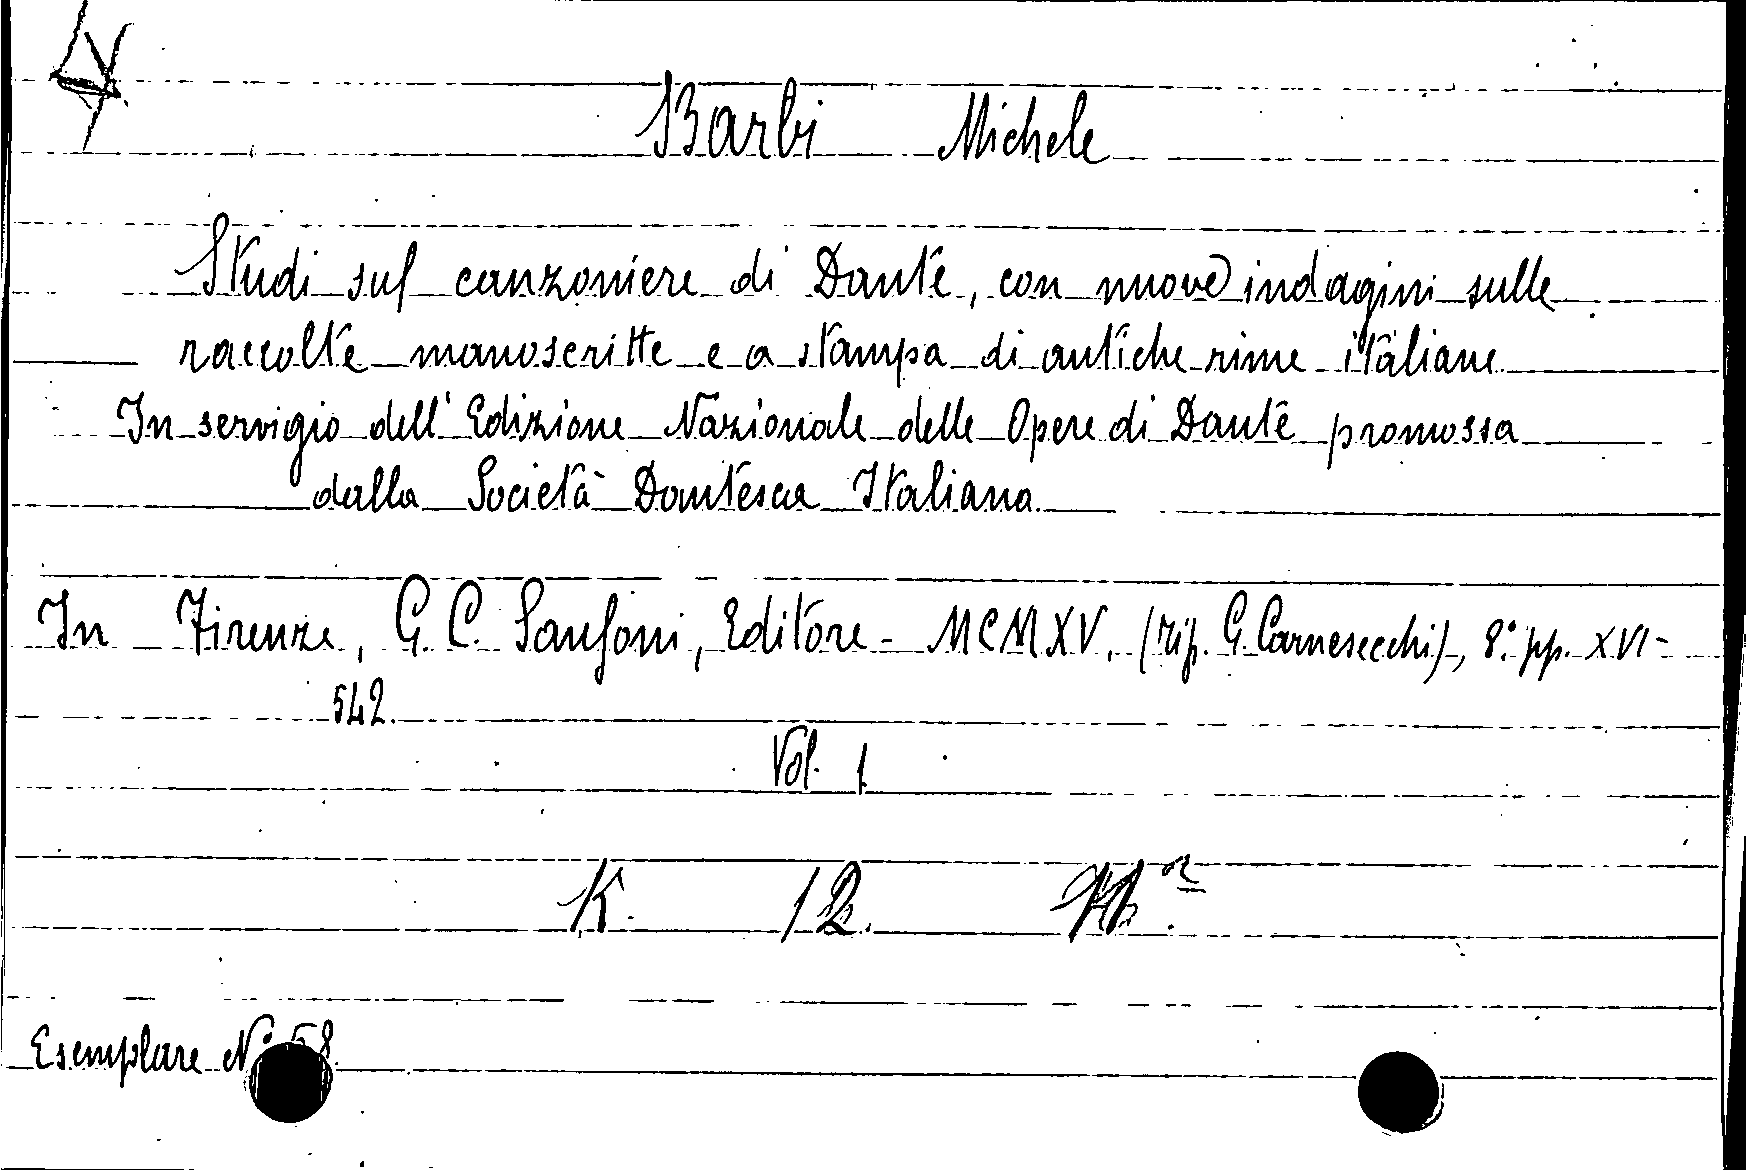 Barbi Michele
Studi sul canzoniere di Dante, con nuove indagini sulle
raccolte manoscritte e a stampa di antiche rime italiane
In servigio dell'Edizione Nazionale delle Opere di Dante promossa
dalla Società Dantesca Italiana
In Firenze, G. C. Sansoni, Editore - MCMXV. (tip. G. Carnesecchi), 8.° pp. XVI-
542.
Vol. 1
K. 12.
Esemplare N° 58